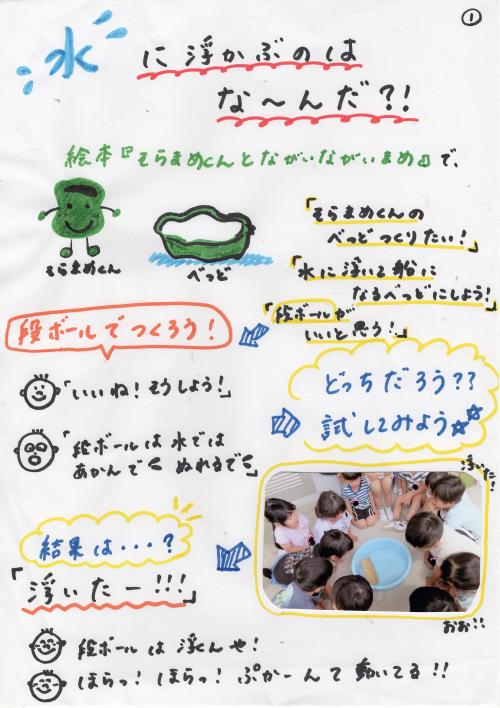 ①
水に浮かぶのは
な〜んだ?!
絵本『そらまめくんとながいながいまめ』で、
そらまめくん
べっど
「そらまめくんの
べっどつくりたい!」
「水に浮いて船に
なるべっどにしよう!」
「段ボールが
いいと思う!」
段ボールでつくろう!
「いいね!そうしよう!」
「段ボールは水では
あかんで ぬれるで」
どっちだろう??
試してみよう☆☆
浮いた!
おお!!
結果は・・・?
「浮いたー!!!」
段ボールは浮くんや!
ほらっ!ほらっ!ぷかーんて動いてる!!